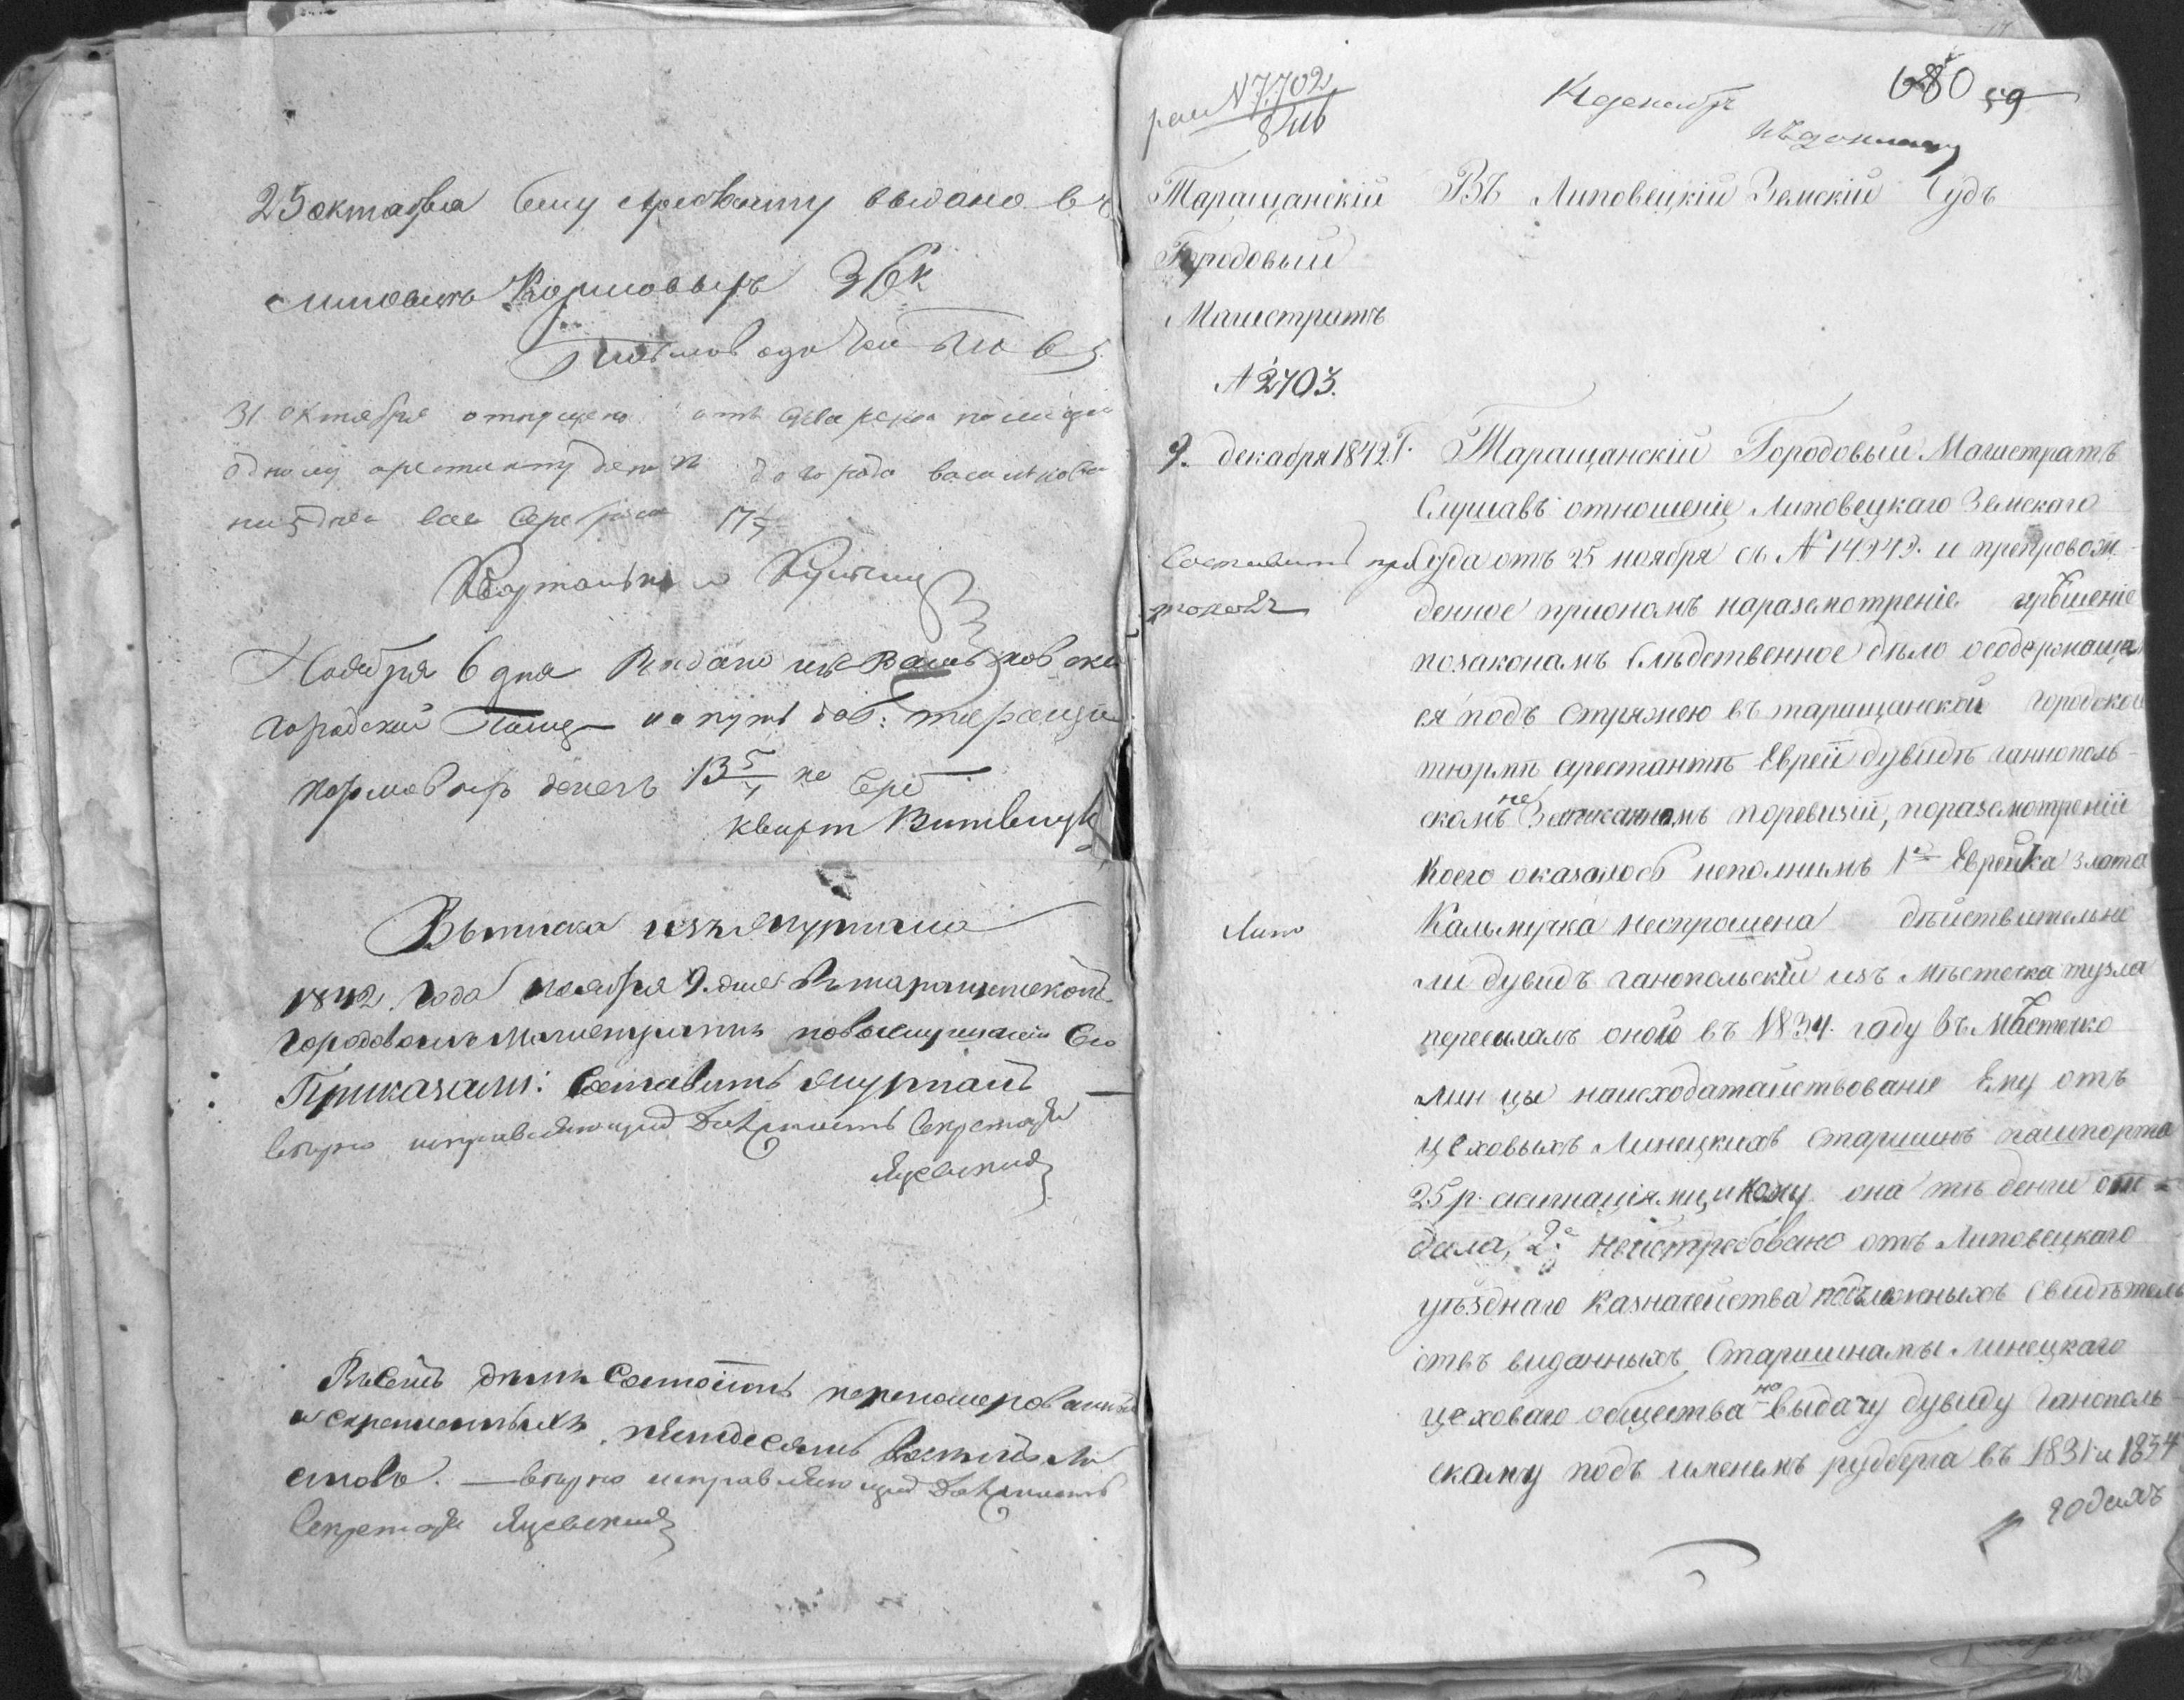 25 октября сему арестанту выдано в г.
Липовцѣ Кормовыхъ 36 к
31 октября отпущено отъ полиціи
одному арестанту денегъ до города василькова
на два дни Серебромъ 17 1/7
Ноября 6 дня Выдано изъ Васильковской
городской Полиц на путь до г: таращи
кормовыхъ денегъ 13 5/7 ко Сереб
кварт
Выписка изъ журнала
1842 года ноября 9 дня Въ таращанскомъ
городовомъ магистратѣ по выслушаніи Сего
Приказали: Составить журналъ
Вѣрно исправляющій Должность Секретаря
Яцевскій
Въ семъ дѣлѣ Состоитъ перенумерованныхъ
и скрепленныхъ пятдесятъ Восемь ли
стовъ. — Вѣрно исправляющій Должность
Секретаря Яцевскій
№ 7.702
К декабр
къ докладу
680 59
Таращанскій
Городовый
Магистратъ
№ 2703.
9. декабря 1842. Г.
Въ Липовецкій Земскій Судъ
Таращанскій Городовый Магистратъ
Слушавъ отношеніе Липовецкаго Земскаго
Суда отъ 25 ноября съ № 14249. и препровож
денное приономъ наразсмотреніе и рѣшеніе
позаконамъ Слѣдственное дѣло осодержаща
ся подъ Стражею въ таращанской городской
тюрмѣ арестантѣ Еврей дувидѣ ганнополь-
скомъ не Записанномъ поревизіи, поразсмотреніи
коего оказалось неполнимъ 1е Еврейка злата
Калмучка неспрошена дѣйствительно
ли дувидъ ганопольскій изъ мѣстечка тузла
пересылалъ оной въ 1834 году въ Мѣстечко
линцы наисходатайствованіе Ему отъ
цеховыхъ Линецкихъ старшинъ пашпорта
25 р. ассигнаціями, и кому она тѣ денги от-
дала, 2е неистребовано отъ Липовецкаго
уѣзднаго Казначейства подложныхъ Свидѣтель
ствъ виданныхъ Старшинамы Линецкаго
цеховаго общества на выдачу дувиду Ганополь
скому подъ именемъ рудберга въ 1831 и 1834
годахъ
Составить про
токолъ